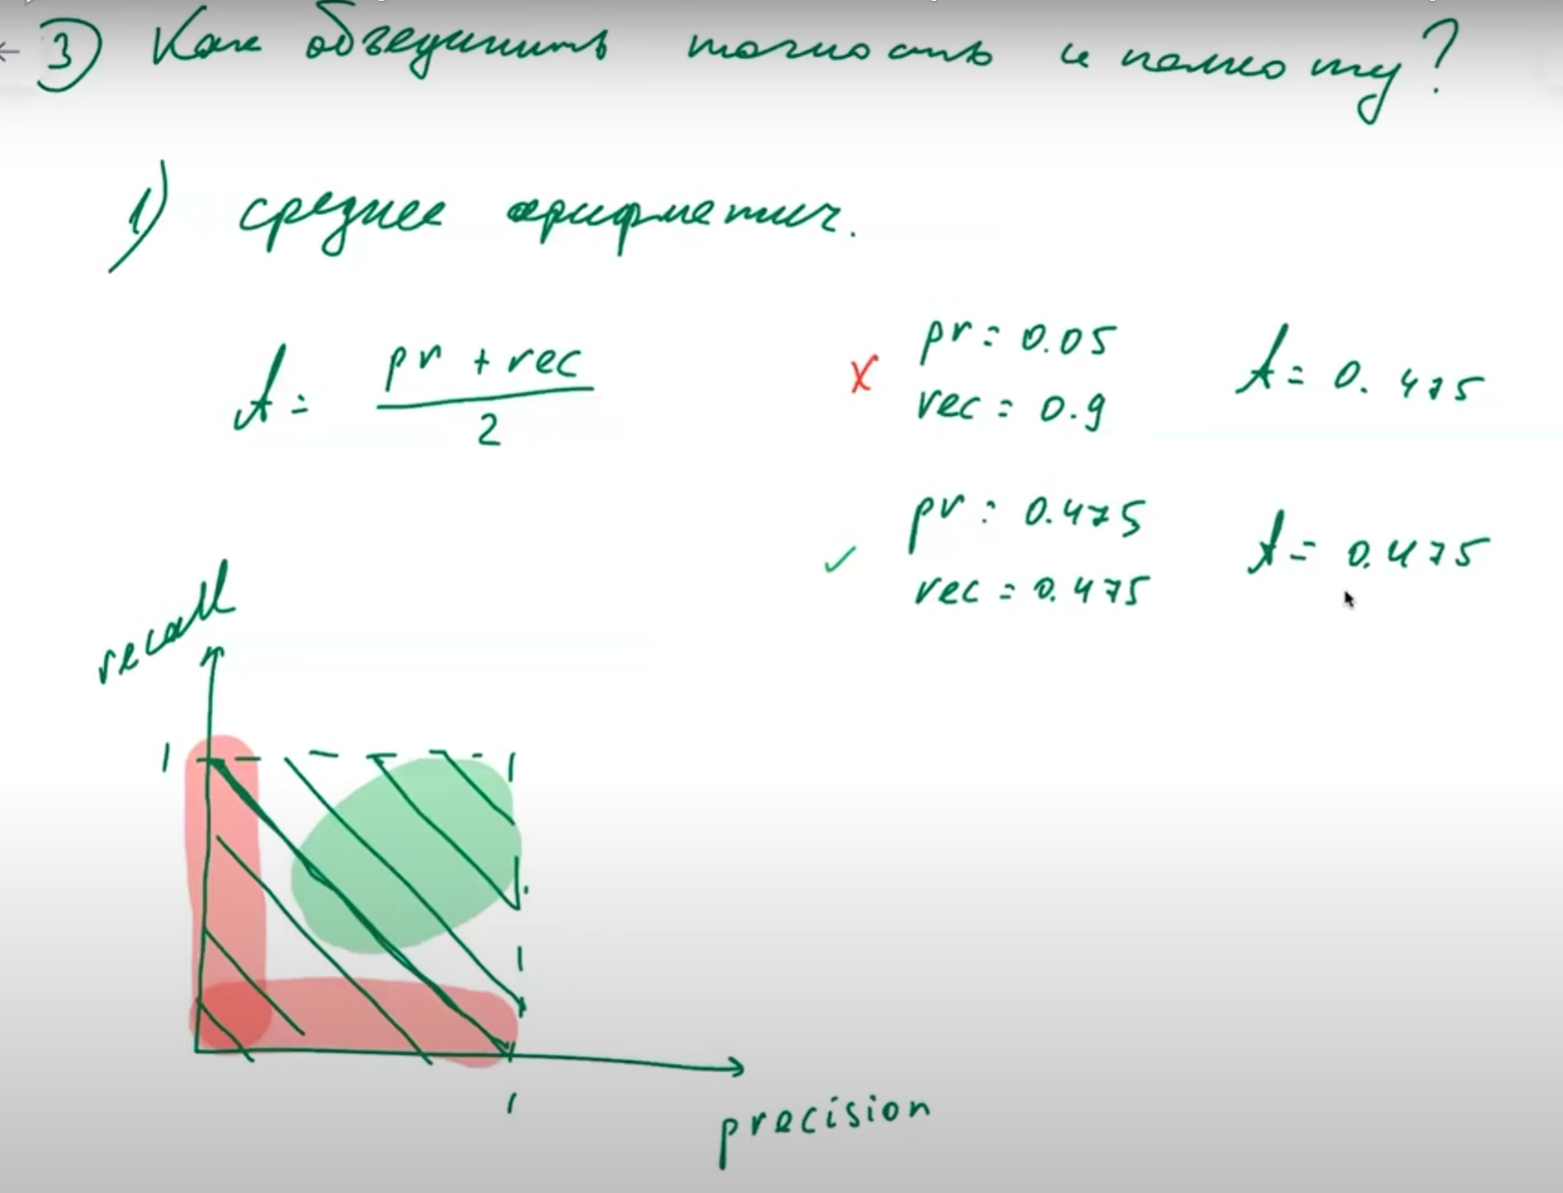 3) Как объединить точность и полноту?
1) среднее арифметич.
A = pr + rec
2
✗ pr = 0.05 A = 0.475
rec = 0.9
✓ pr = 0.475 A = 0.475
rec = 0.475
recall
1
1
precision